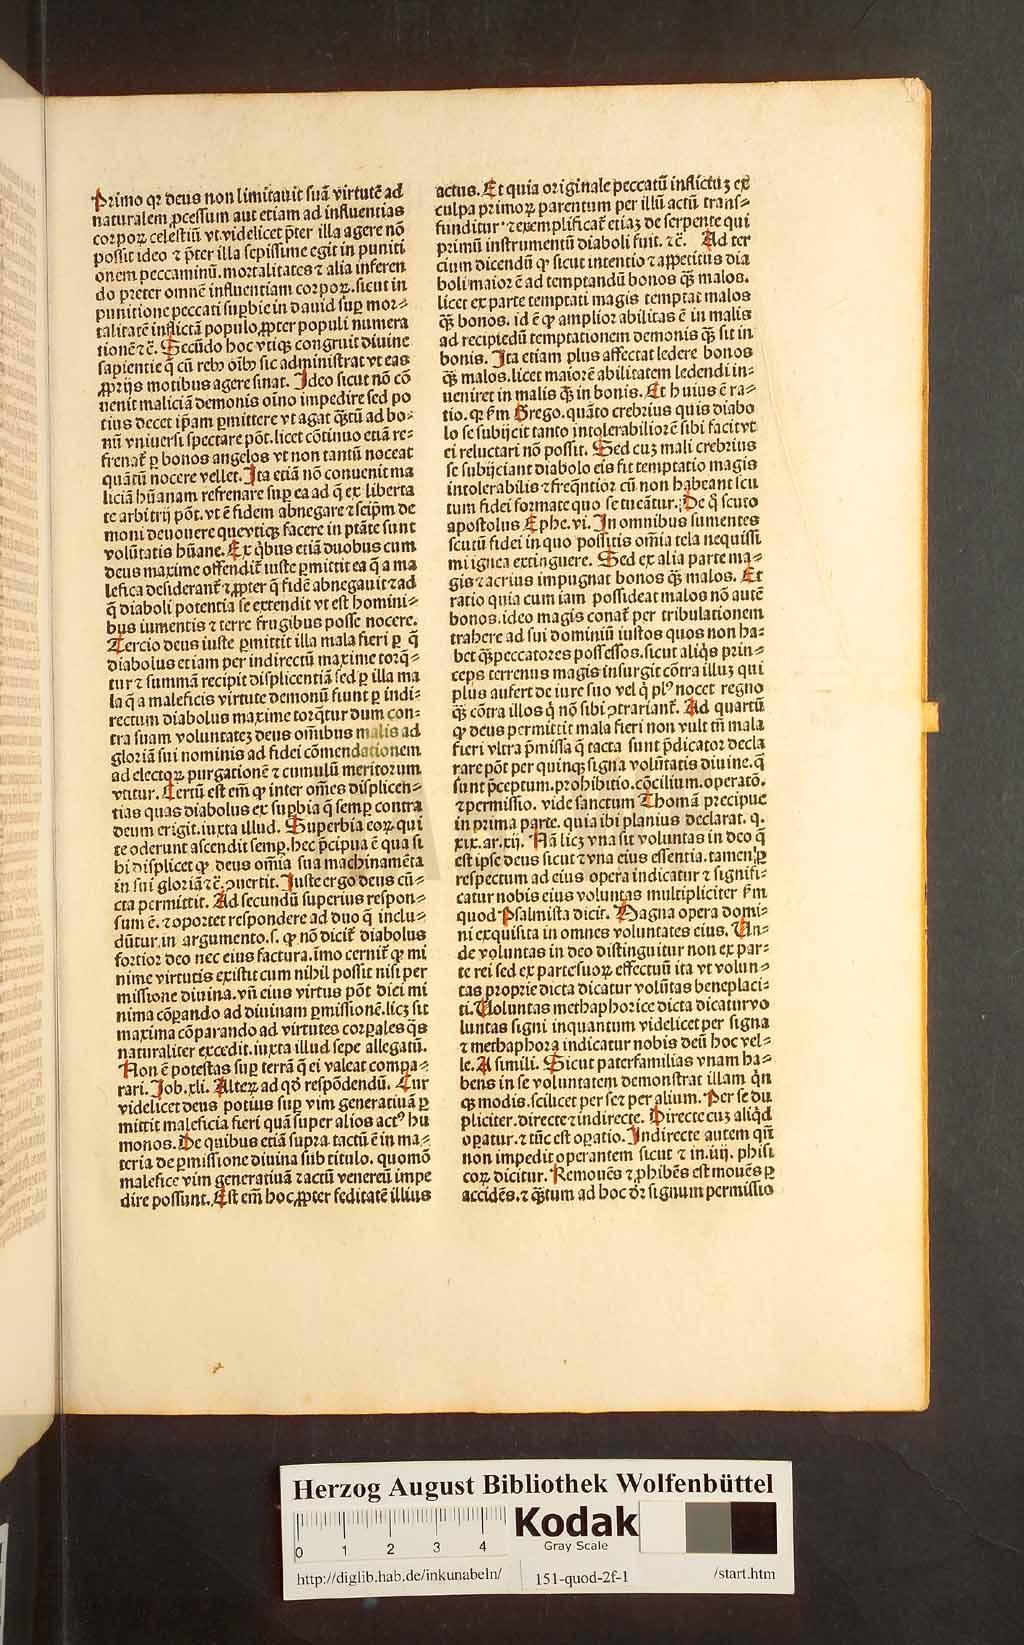 Primo qꝛ deus non limitauit suā virtutē ad
naturalem ꝓcessum aut etiam ad influentias
corpoꝝ celestiū vt videlicet p̄ter illa agere nō
possit ideo ⁊ p̄ter illa sepissime egit in puniti
onem peccaminū. mortalitates ⁊ alia inferen
do preter omnē influentiam corpoꝝ. sicut in
punitione peccati suꝑbie in dauid suꝑ mor⸗
talitatē inflictā populo ꝓpter populi numera
tionē ⁊ċ. Secūdo hoc vtiqꝫ congruit diuine
sapientie q̄ cū rebꝰ oībꝰ sic administrat vt eas
ꝓprijs motibus agere sinat. Ideo sicut nō cō
uenit maliciā demonis oīno impedire sed po
tius decet ip̄am ꝑmittere vt agat q̄ꝫtū ad bo⸗
nū vniuersi spectare pōt. licet cōtinuo etiā re⸗
frenat̄ ꝑ bonos angelos vt non tantū noceat
quātū nocere vellet. Ita etiā nō conuenit ma
liciā hūanam refrenare suꝑ ea ad q̄ ex liberta
te arbitrij pōt. vt ē fidem abnegare ⁊ seip̄m de
moni deuouere que vtiqꝫ facere in ptāte sunt
volūtatis hūane. Ex q̇bus etiā duobus cum
deus maxime offendit̄ iuste ꝑmittit ea q̄ a ma
lefica desiderant̄ ⁊ ꝓpter q̄ fidē abnegauit ⁊ ad
q̄ diaboli potentia se extendit vt est homini⸗
bus iumentis ⁊ terre frugibus posse nocere.
Tercio deus iuste ꝑmittit illa mala fieri ꝑ q̄
diabolus etiam per indirectū maxime torq̄⸗
tur ⁊ summā recipit displicentiā sed ꝑ illa ma
la q̄ a maleficis virtute demonū fiunt ꝑ indi⸗
rectum diabolus maxime torq̄tur dum con⸗
tra suam voluntateꝫ deus omībus malis ad
gloriā sui nominis ad fidei cōmendationem
ad electoꝝ purgationē ⁊ cumulū meritorum
vtitur. Certū est em̄ ꝙ inter om̄es displicen⸗
tias quas diabolus ex suꝑbia q̄ semꝑ contra
deum erigit. iuxta illud. Superbia eoꝝ qui
te oderunt ascendit semꝑ. hec p̄cipua ē qua si
bi displicet ꝙ deus om̄ia sua machinamēta
in sui gloriā ⁊ċ. ꝯuertit. Iuste ergo deus cū⸗
cta permittit. Ad secundū superius respon⸗
sum ē. ⁊ oportet respondere ad duo q̄ inclu⸗
dūtur in argumento. s. ꝙ nō dicit̄ diabolus
fortior deo nec eius factura. īmo cernit̄ ꝙ mi
nime virtutis existit cum nihil possit nisi per
missione diuina. vn̄ eius virtus pōt dici mi
nima cōꝑando ad diuinam ꝑmissionē. licꝫ sit
maxima cōparando ad virtutes corꝑales q̇s
naturaliter excedit. iuxta illud sepe allegatū.
Non ē potestas suꝑ terrā q̄ ei valeat compa⸗
rari. Job. xli. Alteꝝ ad qd̄ respōdendū. Cur
videlicet deus potius suꝑ vim generatiuā ꝑ
mittit maleficia fieri quā super alios actꝰ hu
monos. De quibus etiā supra tactū ē in ma⸗
teria de ꝑmissione diuina sub titulo. quomō
malefice vim generatiuā ⁊ actū venereū impe
dire possunt. Est em̄ hoc ꝓpter feditatē illius
actus. Et quia originale peccatū inflictuꝫ ex
culpa primoꝝ parentum per illū actū trans⸗
funditur ⁊ exemplificat̄ etiaꝫ de serpente qui
primū instrumentū diaboli fuit. ⁊ċ. Ad ter
cium dicendū ꝙ sicut intentio ⁊ appetitus dia
boli maior ē ad temptandū bonos q̄ꝫ malos.
licet ex parte temptati magis temptat malos
q̄ꝫ bonos. id ē ꝙ amplior abilitas ē in malis
ad recipiedū temptationem demonis q̄ꝫ sit in
bonis. Ita etiam plus affectat ledere bonos
q̄ꝫ malos. licet maiorē abilitatem ledendi in⸗
ueniret in malis q̄ꝫ in bonis. Et huius ē ra⸗
tio. qꝛ ẜm Grego. quāto crebrius quis diabo
lo se subijcit tanto intolerabiliorē sibi facit vt
ei reluctari nō possit. Sed cuꝫ mali crebrius
se subijciant diabolo eis fit temptatio magis
intolerabilis ⁊ freq̄ntior cū non habeant scu
tum fidei formate quo se tueātur. De q̇ scuto
apostolus Ephe. vi. In omnibus sumentes
scutū fidei in quo possitis om̄ia tela nequissi
mi ignea extinguere. Sed ex alia parte ma⸗
gis ⁊ acrius impugnat bonos q̄ꝫ malos. Et
ratio quia cum iam possideat malos nō autē
bonos. ideo magis conat̄ per tribulationem
trahere ad sui dominiū iustos quos non ha⸗
bet q̄ꝫ peccatores possessos. sicut aliq̇s prin⸗
ceps terrenus magis insurgit cōtra illuꝫ qui
plus aufert de iure suo vel q̇ plꝰ nocet regno
q̄ꝫ cōtra illos q̇ nō sibi ꝯtrariant̄. Ad quartū
ꝙ deus permittit mala fieri non vult tn̄ mala
fieri vltra p̄missa q̄ tacta sunt p̄dicator decla
rare pōt per quinqꝫ signa volūtatis diuine. q̄
sunt p̄ceptum. prohibitio. cōcilium. operatō.
⁊ permissio. vide sanctum Thomā precipue
in prima parte. quia ibi planius declarat. q.
xix. ar. xij. Nā licꝫ vna sit voluntas in deo q̄
est ipse deus sicut ⁊ vna eius essentia. tamen ꝑ
respectum ad eius opera indicatur ⁊ signifi⸗
catur nobis eius voluntas multipliciter ẜm
quod Psalmista dicit. Magna opera domi⸗
ni exquisita in omnes voluntates eius. Un⸗
de voluntas in deo distinguitur non ex par⸗
te rei sed ex parte suoꝝ effectuū ita vt volun⸗
tas proprie dicta dicatur volūtas beneplaci⸗
ti. Uoluntas methaphorice dicta dicatur vo
luntas signi inquantum videlicet per signa
⁊ methaphora indicatur nobis deū hoc vel⸗
le. A simili. Sicut paterfamilias vnam ha⸗
bens in se voluntatem demonstrat illam q̇n
qꝫ modis. scilicet per se ⁊ per alium. Per se du
pliciter. directe ⁊ indirecte. Directe cuꝫ aliq̇d
oꝑatur. ⁊ tūc est oꝑatio. Indirecte autem qn̄
non impedit operantem sicut ⁊ in. iiij. phisi
coꝝ dicitur. Remouēs ⁊ ꝓhibēs est mouēs ꝑ
accidēs. ⁊ q̄ꝫtum ad hoc dr̄ signum permissio
Herzog August Bibliothek Wolfenbüttel
0 1 2 3 4
Kodak
Gray Scale
http://diglib.hab.de/inkunabeln/ 151-quod-2f-1 /start.htm